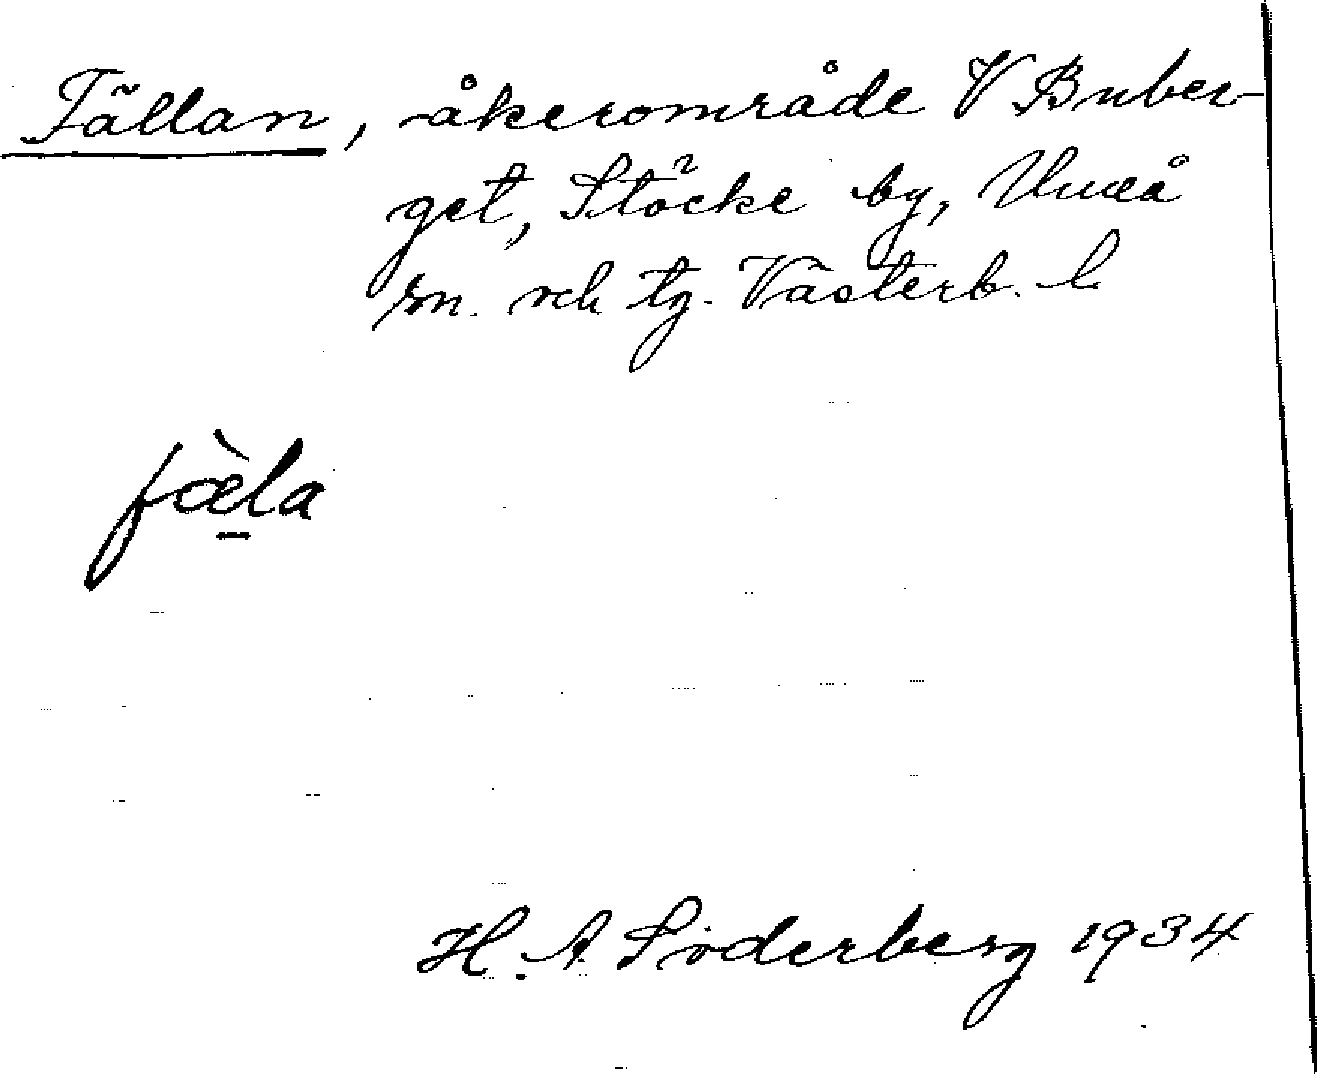 Fällan, åkerområde V Buber-
get, Stöcke by, Umeå
sn. och tg. Västerb. l.
fæ̀la
H. A. Söderberg 1934